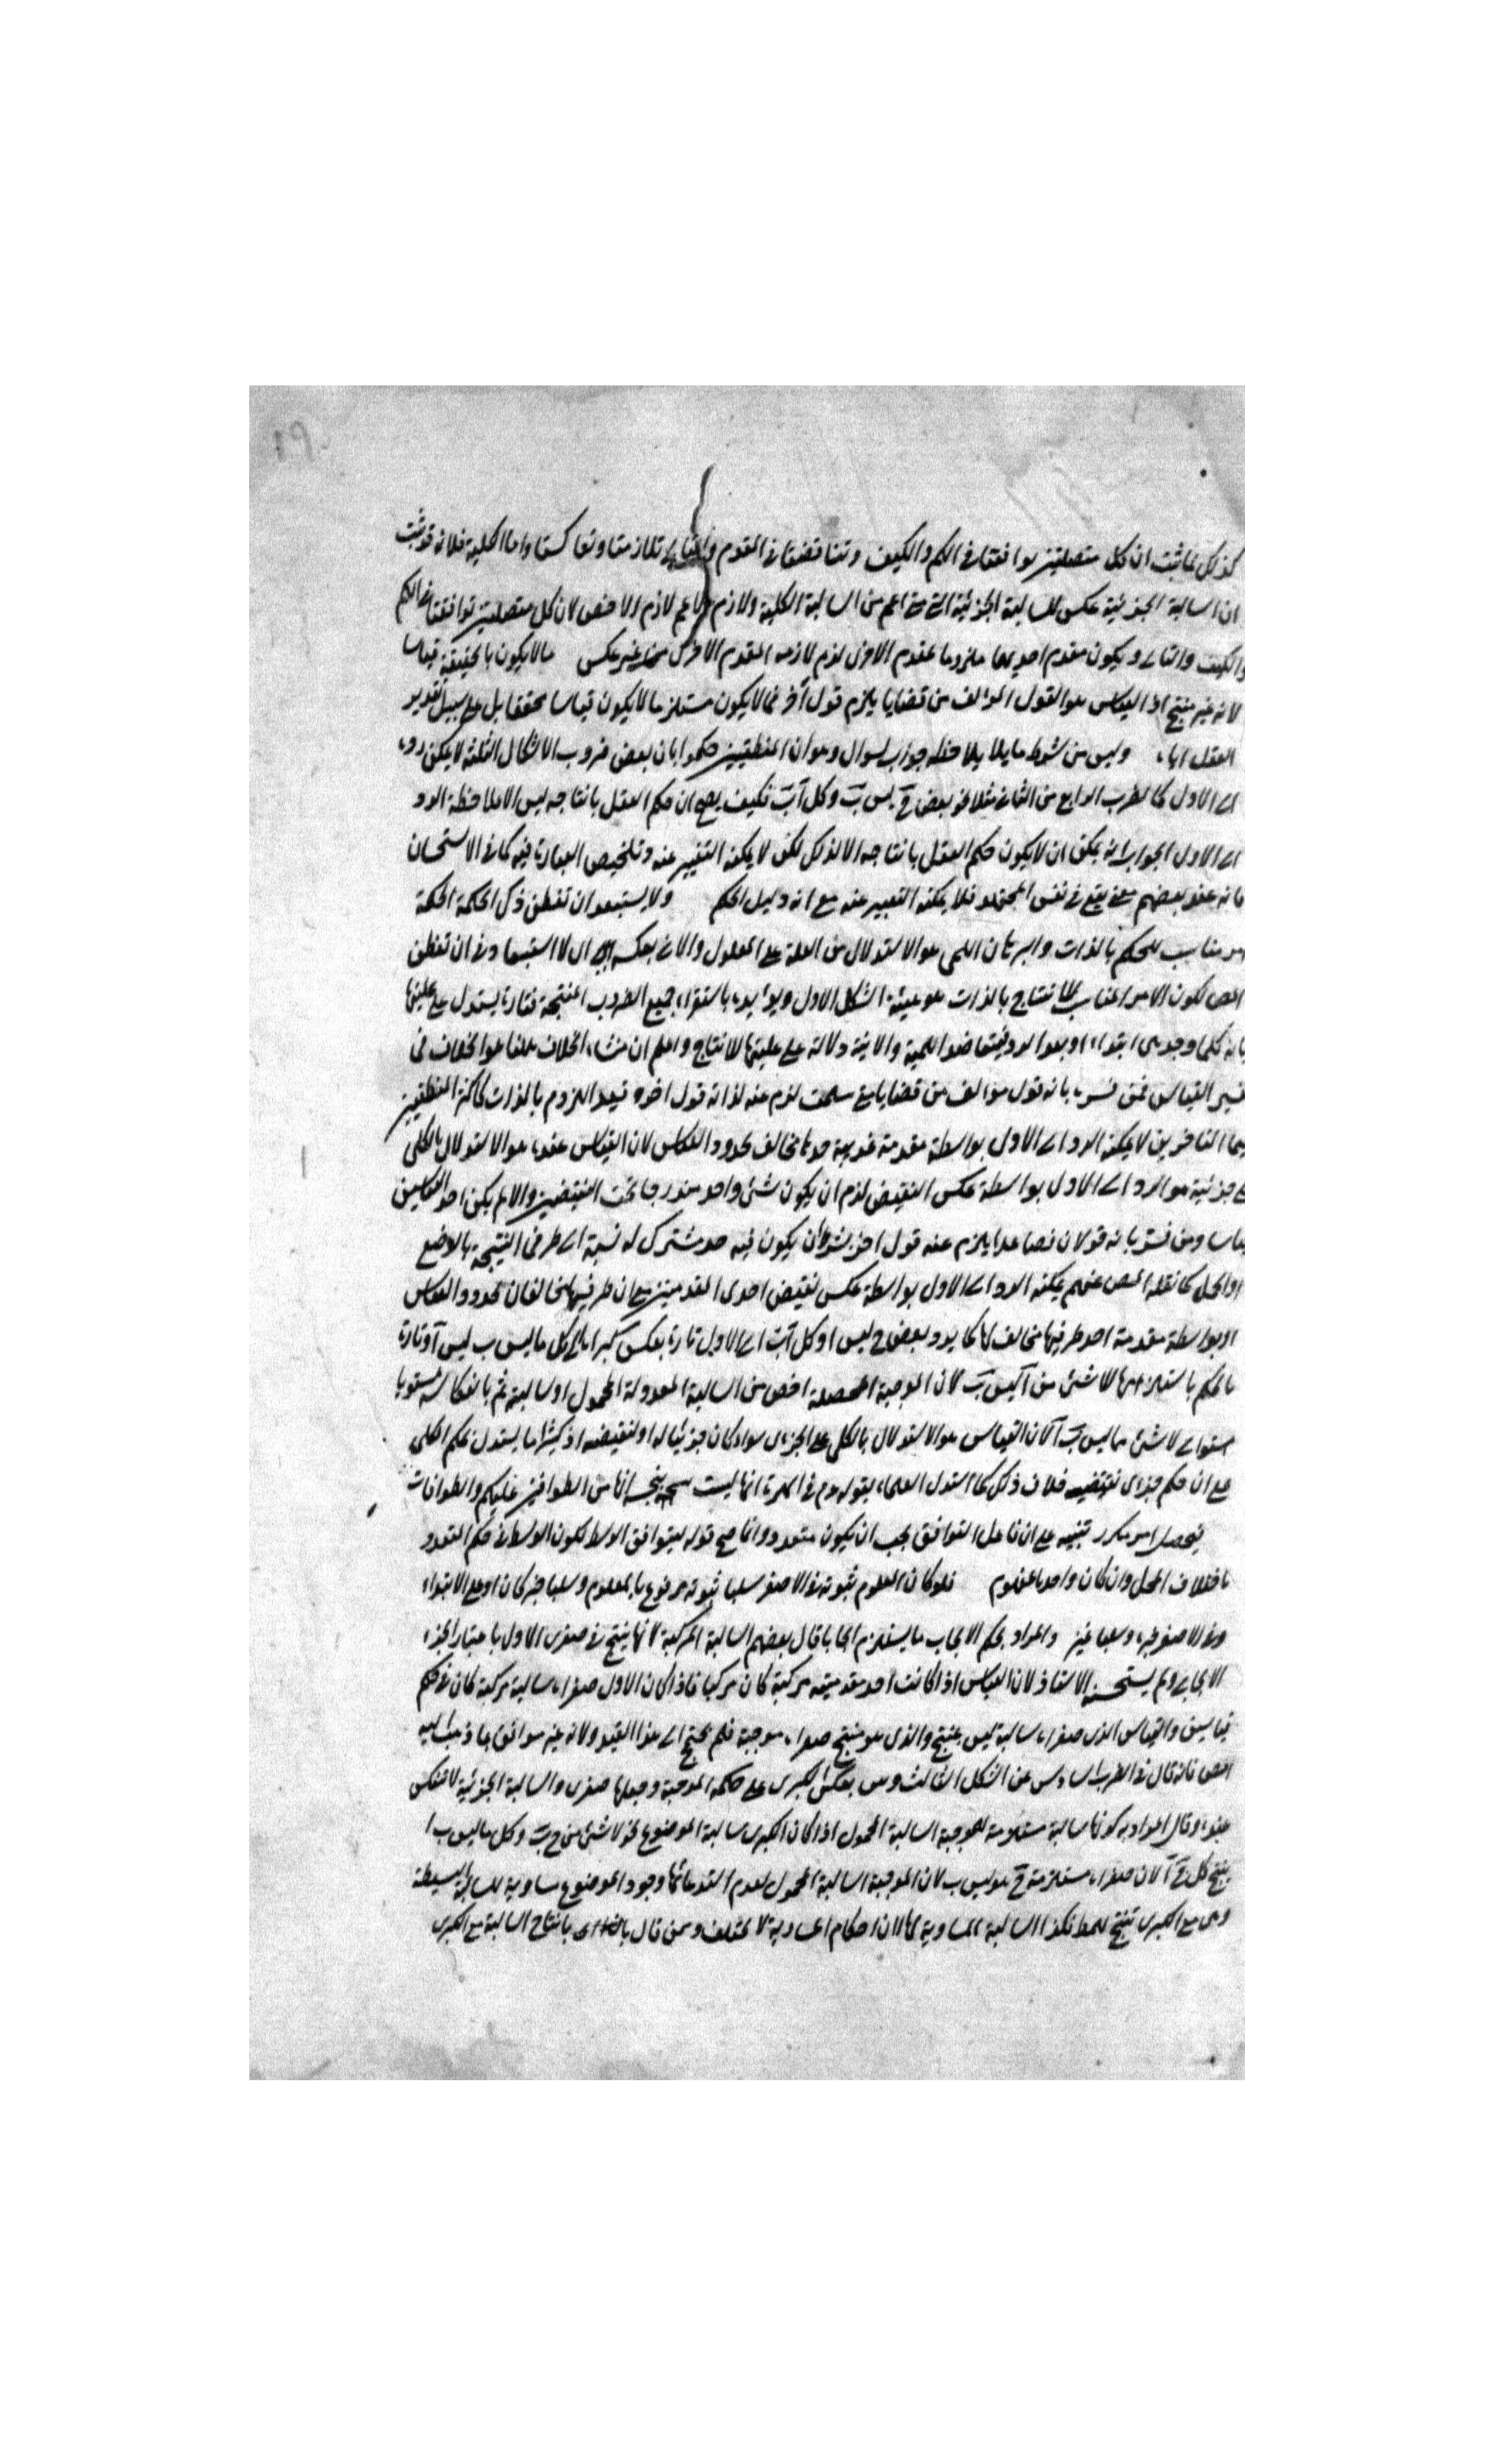 كذلك لما ثبت ان كل متصلتين توافقتا في الكم والكيف وتناقضتا في المقدم والتالي تلازمتا وتعاكستا واما الكلية فلانه قد ثبت
ان السالبة الجزئية عكس للسالبة الجزئية التي هي اعم من السالبة الكلية ولازم الاعم لازم الاخص لان كل متصلتين توافقتا في الكم
والكيف والتالي ويكون مقدم احديهما ملزوما لمقدم الاخرى لزم لازمه المقدم الاخرى من غير عكس مالا يكون بالحقيقة قياسا
لانه غير منتج اذ القياس هو القول المؤلف من قضايا يلزم قول آخر فما لا يكون مستلزما لا يكون قياسا محققا بل على سبيل تقدير
العقل اياه وليس من شرط مايلا يلاحظه جواب لسوال وهو ان المنطقيين حكموا بان بعض ضروب الاشكال الثلثة لا يمكن رده
الى الاول كالضرب الرابع من الثاني مثلا نحو بعض ج ليس ب وكل آ ب فكيف يصح ان حكم العقل بانتاجه ليس الا بملاحظة الرد
الى الاول الجواب انه يمكن ان لا يكون حكم العقل بانتاجه الا لذلك لكن لا يمكنه التعبير عنه وتلخيص العبارة فيه كما في الاستحسان
فانه عند بعضهم معنى يقع في نفس المجتهد فلا يمكنه التعبير عنه مع انه دليل الحكم ولا يستبعد ان تفطن ذكي الحكمة الحكمة
امر مناسب للحكم بالذات والبرهان اللمي هو الاستدلال من العلة على المعلول والاني بعكسه اي لا استبعاد في ان تفطن
المص لكون الامر المناسب للانتاج بالذات هو هيئة الشكل الاول ويؤيده باستقراء جميع الضروب المنتجة فتارة يستدل على عليتها
بانه كلما وجد هي ابتداء او بعد الرد فيتعاضد اللمية والانية دلالة على عليتها للانتاج واعلم ان منشاء الخلاف هلهنا هو الخلاف في
تفسير القياس فمن فسره بانه قول مؤلف من قضايا متى سلمت لزم عنه لذاته قول اخر وقيد اللزوم بالذات كاكثر المنطقيين
سيما المتاخرين لا يمكنه الرد الى الاول بواسطة مقدمة غريبة حدها مخالف لحدود القياس لان القياس عنده هو الاستدلال بالكلي
على جزئية هو الرد الى الاول بواسطة عكس النقيض لزم ان يكون شئ واحد مندرجا تحت النقيضين والا لم يكن احد القياسين
قياسا ومن فسر بانه قولان فصاعدا يلزم عنه قول اخر بشرط ان يكون فيه حد مشترك له نسبة الى طرفي النتيجة بالوضع
او الحمل كما نقله المص عنهم يمكنه الرد الى الاول بواسطة عكس نقيض احدى المقدمتين مع ان طرفيها مخالفان لحدود القياس
او بواسطة مقدمة احد طرفيها مخالف لها كما يرد بعض ج ليس ا وكل آ ب الى الاول تارة بعكس كبراه الى كل ما ليس ب ليس آ وتارة
بالحكم باستلزامها للا شئ من آ ليس ب لان الموجبة المحصلة اخص من السالبة المعدولة المحمول او سالبته ثم بانعكاسه مستويا
مستوالى لا شئ مما ليس ب آ لان القياس هو الاستدلال بالكلي على الجزءى سواء كان جزئيا له او لنقيضه اذ كثيرا ما يستدل بحكم الكلي
على ان حكم جزءى نقيضه خلاف ذلك كما استدل العلماء بقوله عم في الهرة انها ليست بنجسة انها من الطوافين عليكم والطوافات
يتحصل امر مكرر تنبيه على ان فاعل التوافق يجب ان يكون متعددا وانما صح قوله يتوافق الاوسط لكون الاوسط في حكم المتعدد
باختلاف المحل وان كان واحدا بالمفهوم فلو كان المعلوم ثبوته في الاصغر سلبا ثبوته مرفوع بالمعلوم وسلبا خبر كان او على الابتداء
وفي الاصغر خبره وسلبا تميز والمراد بحكم الايجاب ما يستلزم ايجابا قال بعضهم السالبة المركبة لانها ينتج في صغرى الاول باعتبار الجزء
الايجابي ولم يستحسنه الاستاذ لان القياس اذا كانت احد مقدمتيه مركبة كان مركبا فاذا كان الاول صغراه سالبة مركبة كان في حكم
قياسين والقياس الذي صغراه سالبة ليس بمنتج والذي هو منتج صغراه موجبة فلم يحتج الى هذا القيد ولانه غير موافق لما ذهب اليه
المص فانه قال في الضرب السادس من الشكل الثالث وس بعكس الكبرى على حكمه الموجبة وجعلها صغرى والسالبة الجزئية لا تنعكس
عنده وقال المراد به كونها سالبة مستلزمة للموجبة السالبة المحمول اذا كان الكبرى سالبة الموضوع نحو لا شئ من ج ب وكل ما ليس ب ا
ينتج كل ج آ لان صغراه مستلزمة ج هو ليس ب لان الموجبة السالبة المحمول لعدم استدعائها وجود الموضوع مساوية للسالبة البسيطة
وهي مع الكبرى تنتج للمط فكذا السالبة المساوية لها لان احكام المساوية لا تختلف ومن قال بانتاج السالبة مع الكبرى